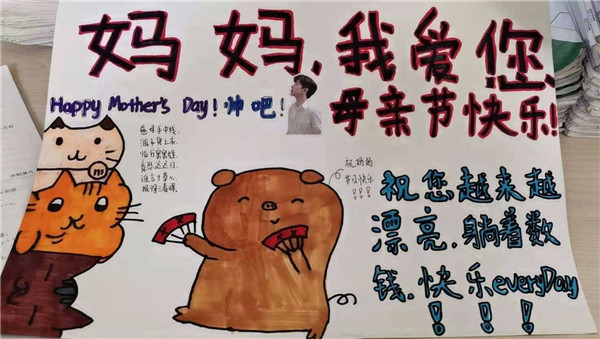 妈妈,我爱您、
Happy Mother's Day! 帅吧!
母亲节快乐!
慈母手中线,
游子身上衣,
临行密密缝,
意恐迟迟归,
谁言寸草心,
报得三春晖
祝妈妈
节日快乐
!!!
祝您越来越
漂亮,躺着数
钱,快乐everyDay
!!!